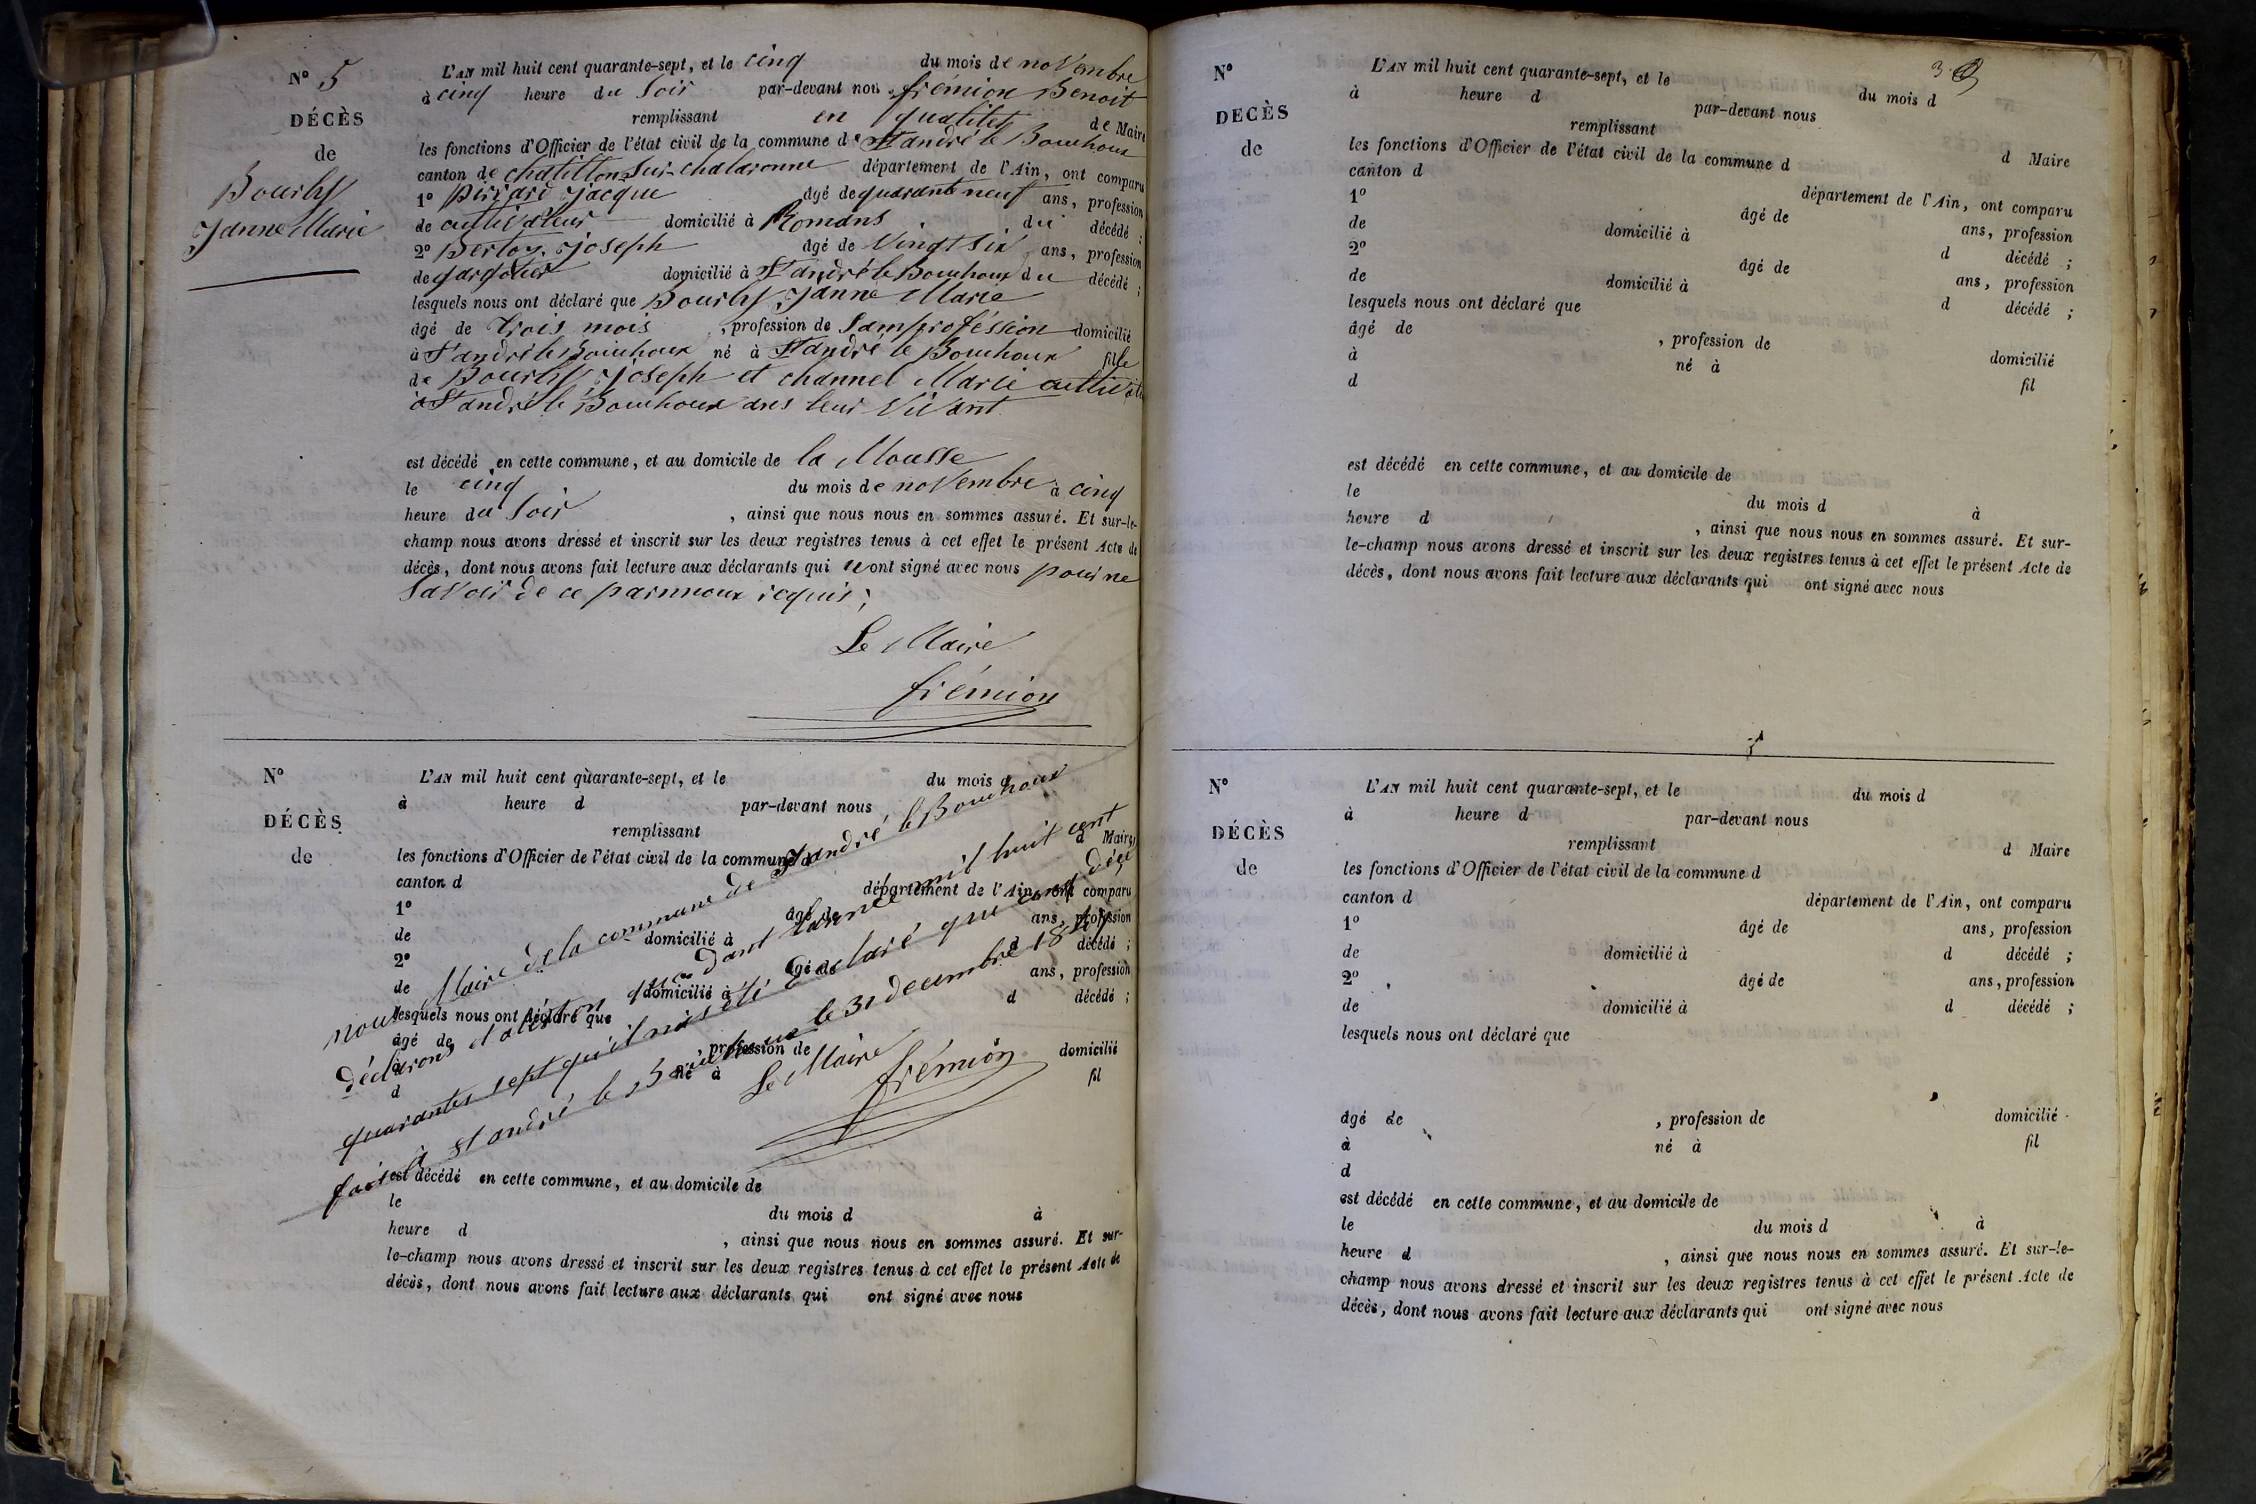 N° 5
DÉCÈS
de
Bourly
Janne Marie
L'AN mil huit cent quarante-sept, et le cinq du mois de novembre
à cinq heure du soir par-devant nous frémion Benoit
remplissant en qualitez de Maire
les fonctions d'Officier de l'état civil de la commune de St andré le Bouchoux
canton de chatillon sur chalaronne département de l'Ain, ont comparu
1° jacque âgé de quarant neuf ans, profession
de cultivateur domicilié à Romans du décédé ;
2° Bertoz joseph âgé de vingt six ans, profession
de gargotier domicilié à St andré le Bouchoux du décédé ;
lesquels nous ont déclaré que Bourly janne Marie
âgé de trois mois , profession de samproféssion domicilié
à St andré le Bouchoux né à St andré le Bouchoux fille
de Bourly joseph et channel Marie
à St andré le Bouchoux ans leur vivant
est décédé en cette commune, et au domicile de la Mousse
le cinq du mois de novembre à cinq
heure du soir , ainsi que nous nous en sommes assuré. Et sur-le-
champ nous avons dressé et inscrit sur les deux registres tenus à cet effet le présent Acte de
décès, dont nous avons fait lecture aux déclarants qui ont signé avec nous pour ne
savoir de ce requis ;
Le Maire
frémion
N°
DÉCÈS
de
L'AN mil huit cent quarante-sept, et le du mois d
à heure d par-devant nous
remplissant d Maire
les fonctions d'Officier de l'état civil de la commune d
canton d département de l'Ain, ont comparu
1° âgé de ans, profession
de domicilié à d décédé ;
2° âgé de ans, profession
de domicilié à d décédé ;
lesquels nous ont déclaré que
âgé de , profession de domicilié
à né à fil
d
nous Maire de la commune de St andré le Bouchoux
déclarons que dant l'année mil huit cent
quarantes sept qu'il n'as été déclaré que cinq déce
fait à St andré le Bouchoux le 31 decembre 1847
Le Maire frémion
est décédé en cette commune, et au domicile de
le du mois d à
heure d , ainsi que nous nous en sommes assuré. Et sur-
le-champ nous avons dressé et inscrit sur les deux registres tenus à cet effet le présent Acte de
décès, dont nous avons fait lecture aux déclarants qui ont signé avec nous
3
N°
DECÈS
de
L'AN mil huit cent quarante-sept, et le du mois d
à heure d par-devant nous
remplissant d Maire
les fonctions d'Officier de l'état civil de la commune d
canton d département de l'Ain, ont comparu
1° âgé de ans, profession
de domicilié à d décédé ;
2° âgé de ans, profession
de domicilié à d décédé ;
lesquels nous ont déclaré que
âgé de , profession de domicilié
à né à fil
d
est décédé en cette commune, et au domicile de
le du mois d à
heure d , ainsi que nous nous en sommes assuré. Et sur-
le-champ nous avons dressé et inscrit sur les deux registres tenus à cet effet le présent Acte de
décès, dont nous avons fait lecture aux déclarants qui ont signé avec nous
N°
DÉCÈS
de
L'AN mil huit cent quarante-sept, et le du mois d
à heure d par-devant nous
remplissant d Maire
les fonctions d'Officier de l'état civil de la commune d
canton d département de l'Ain, ont comparu
1° âgé de ans, profession
de domicilié à d décédé ;
2° âgé de ans, profession
de domicilié à d décédé ;
lesquels nous ont déclaré que
âgé de , profession de domicilié
à né à fil
d
est décédé en cette commune, et au domicile de
le du mois d à
heure d , ainsi que nous nous en sommes assuré. Et sur-le-
champ nous avons dressé et inscrit sur les deux registres tenus à cet effet le présent Acte de
décès, dont nous avons fait lecture aux déclarants qui ont signé avec nous